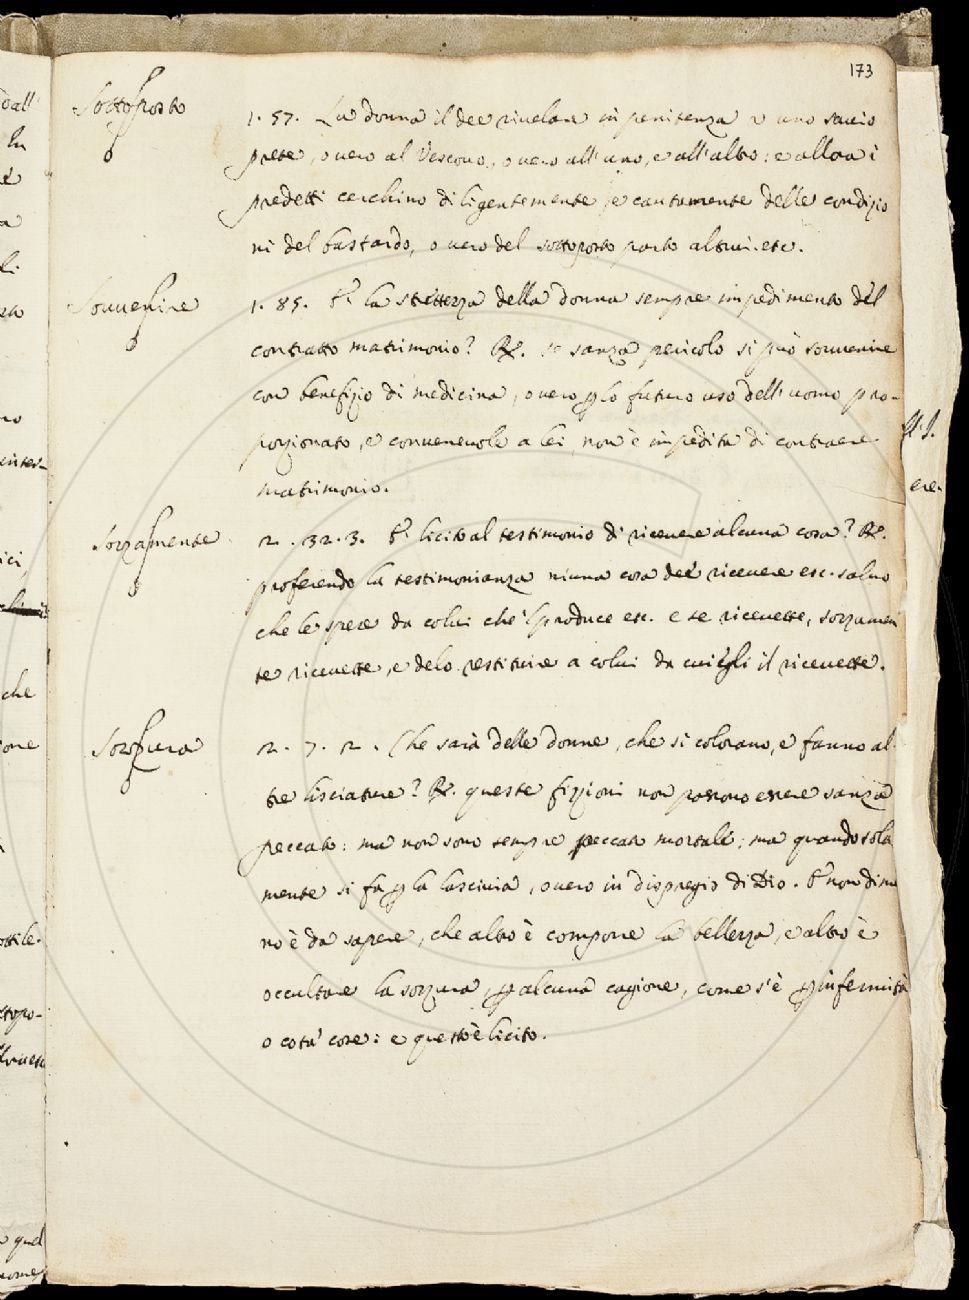 173
Sottoposto
1. 57. La donna il dee rivelare in penitenza a uno savio
prete, o vero al Vescovo, o vero all'uno, e all'altro: e allora i
predetti cerchino diligentemente, e cautamente delle condizio
ni del bastardo, o vero del sottoposto parto altrui. etc.
Souvenire
1. 85. È la strettezza della donna sempre impedimento del
contratto matrimonio? R. se sanza pericolo si può sovvenire
con benefizio di medicina, o vero p lo futuro uso dell'uomo pro-
porzionato, e convenevole a lei, non è impedita di contraere
matrimonio.
Sozzamente
2. 32. 3. È licito al testimonio di ricevere alcuna cosa? R.
proferendo la testimonianza niuna cosa dee ricevere etc. salvo
che le spese da colui che 'l produce etc. e se ricevette, sozzamen
te ricevette, e delo restituire a colui da cui egli il ricevette.
Sozzura
2. 7. 2. Che sarà delle donne, che si colorano, e fanno al-
tre lisciature? R. queste fizzioni non possono essere sanza
peccato: ma non sono sempre peccato mortale; ma quando sola
mente si fa p la lascivia, o vero in dispregio di Dio. E non dime
no è da sapere, che altro è comporre la bellezza, e altro è
occultare la sozzura, p alcuna cagione, come s'è p infermità
o cota' cose: e questo è licito.